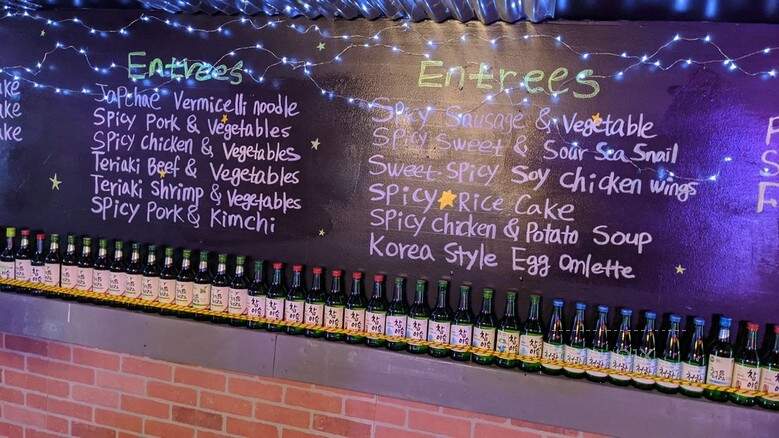 Entrees
Japchae Vermicelli noodle
Spicy Pork & Vegetables
Spicy chicken & Vegetables
Teriaki Beef & Vegetables
Teriaki Shrimp & Vegetables
Spicy Pork & Kimchi
Entrees
Spicy Sausage & Vegetable
Spicy Sweet & Sour Sea Snail
Sweet-Spicy Soy chicken wings
Spicy Rice Cake
Spicy chicken & Potato Soup
Korea Style Egg Omlette
참이슬